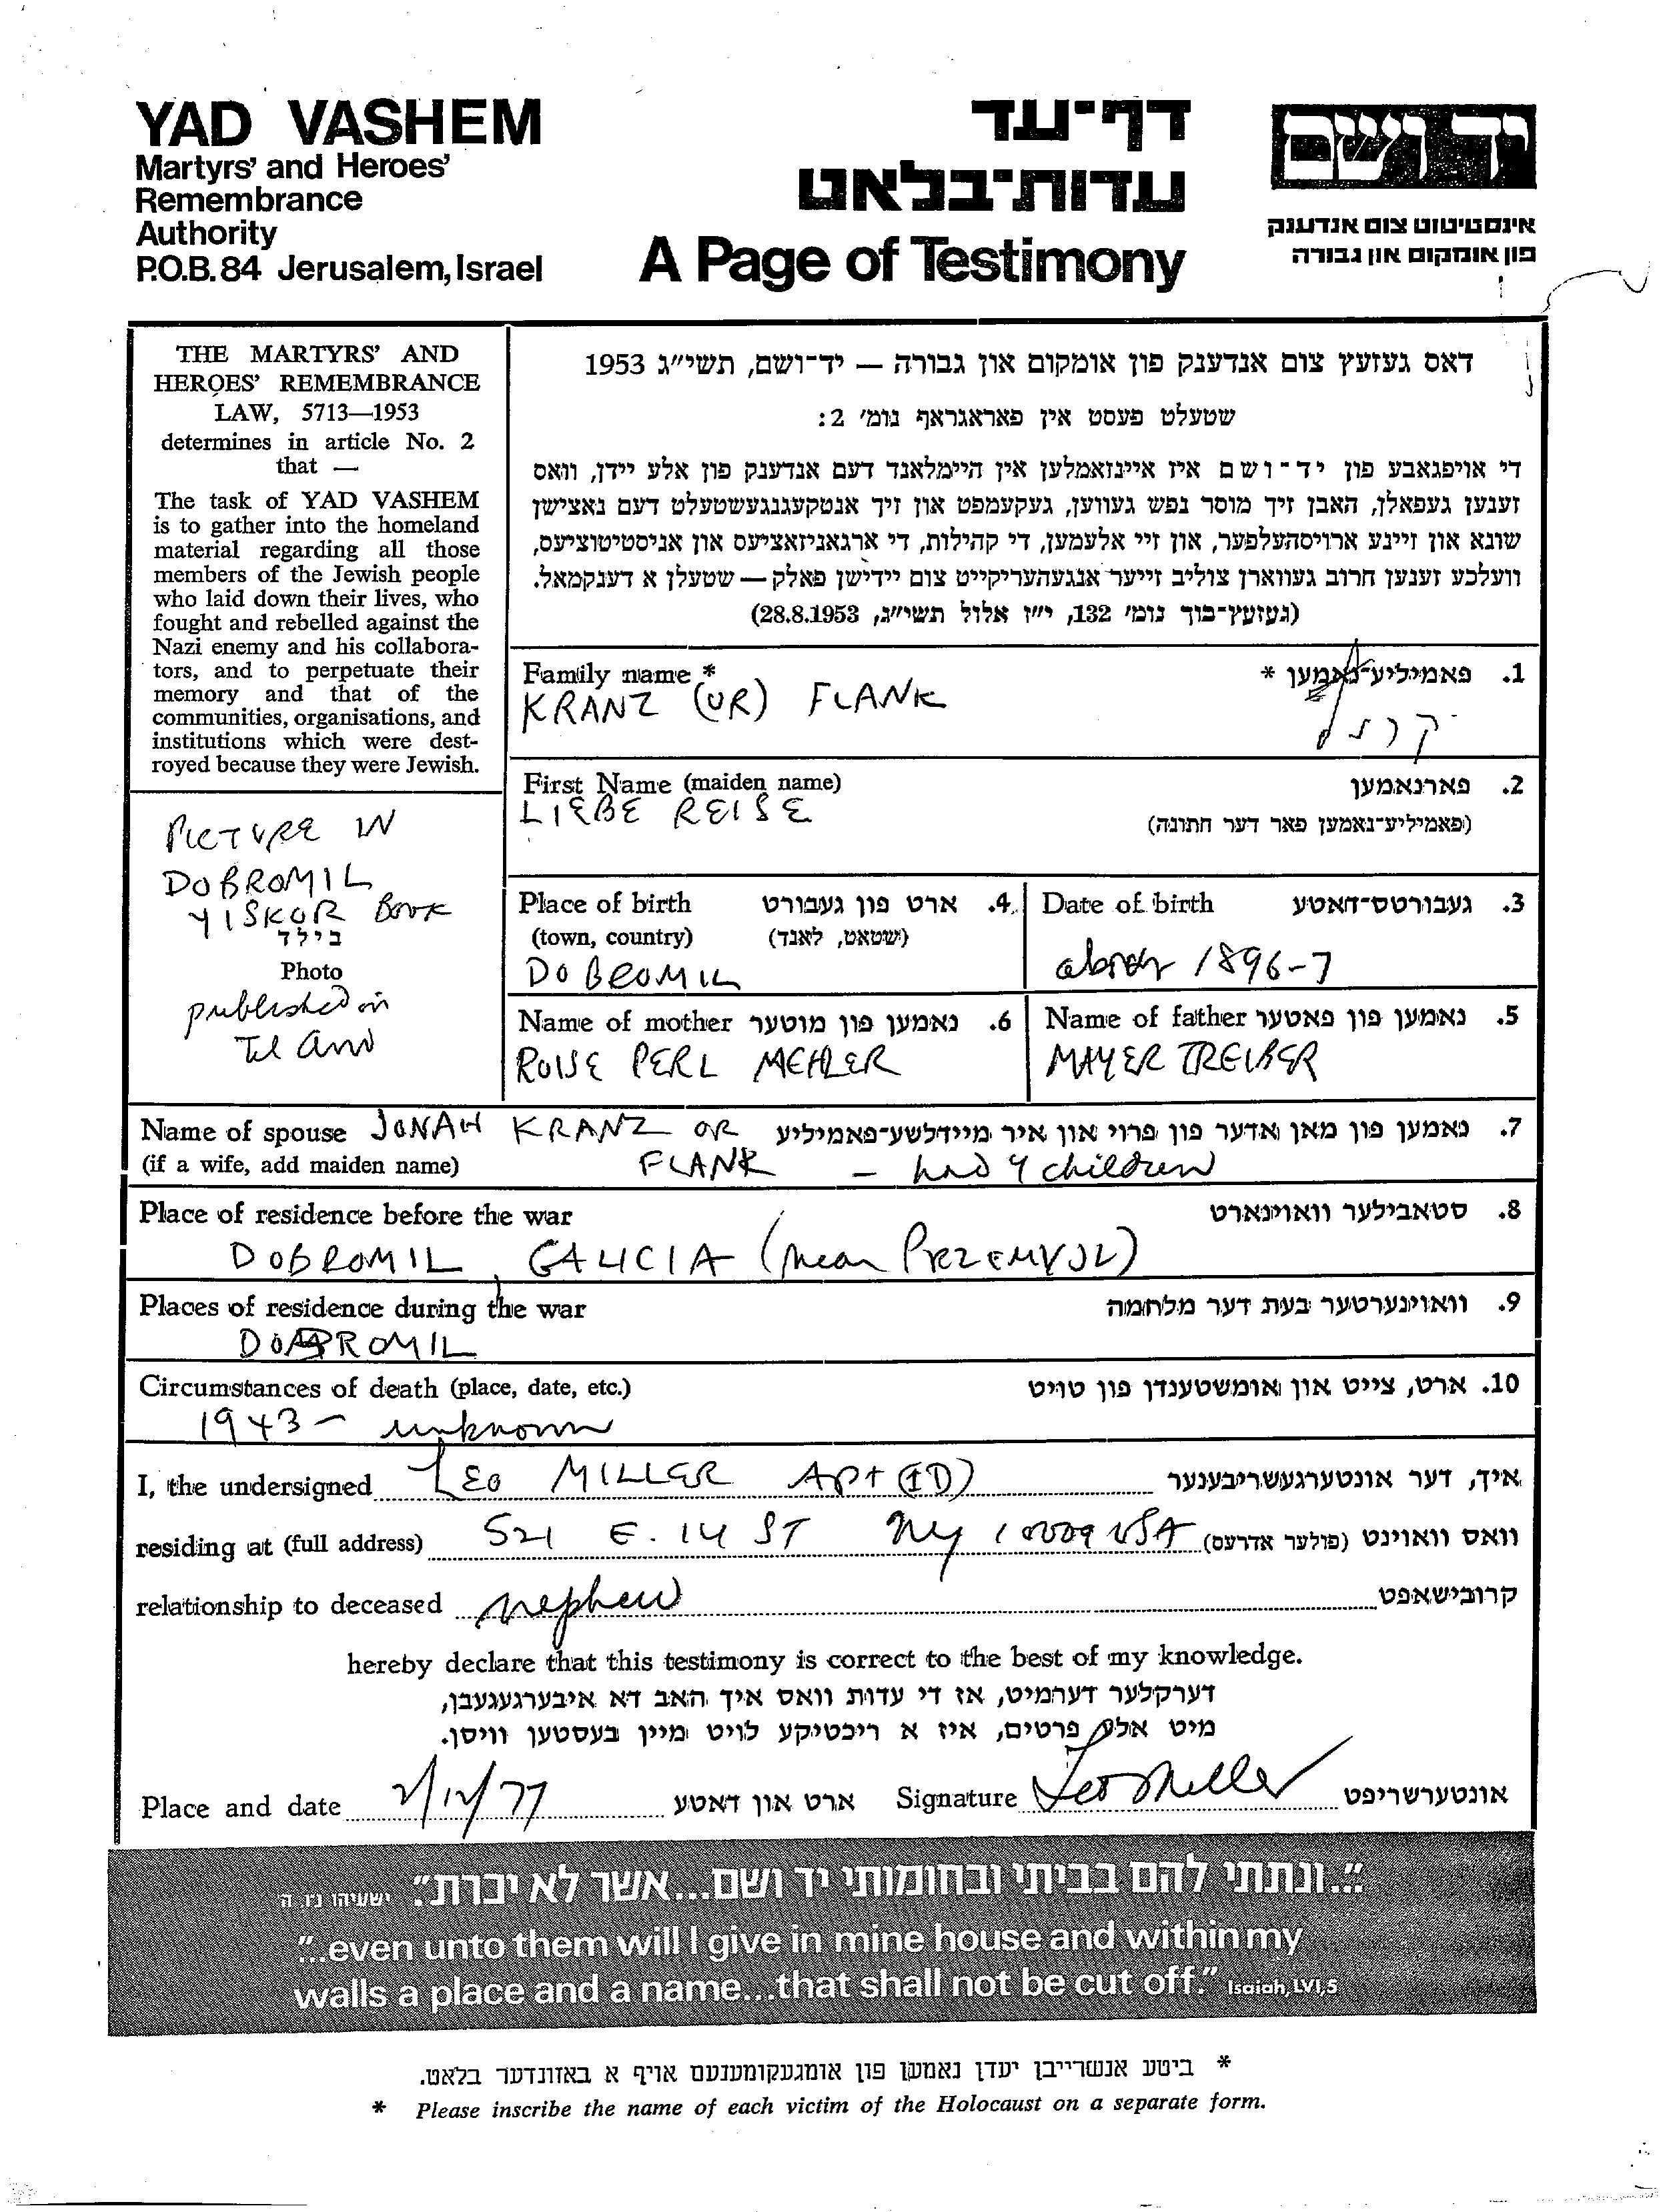 YAD VASHEM
Martyrs' and Heroes'
Remembrance
Authority
P.O.B. 84 Jerusalem, Israel
דף-עד
עדות-בלאט
A Page of Testimony
יד ושם
אינסטיטוט צום אנדענק
פון אומקום און גבורה
THE MARTYRS' AND
HEROES' REMEMBRANCE
LAW, 5713—1953
determines in article No. 2
that —
The task of YAD VASHEM
is to gather into the homeland
material regarding all those
members of the Jewish people
who laid down their lives, who
fought and rebelled against the
Nazi enemy and his collabora-
tors, and to perpetuate their
memory and that of the
communities, organisations, and
institutions which were dest-
royed because they were Jewish.
דאס געזעץ צום אנדענק פון אומקום און גבורה — יד-ושם, תשי"ג 1953
שטעלט פעסט אין פאראגראף נומ' 2:
די אויפגאבע פון יד-ושם איז איינזאמלען אין היימלאנד דעם אנדענק פון אלע יידן, וואס
זענען געפאלן, האבן זיך מוסר נפש געווען, געקעמפט און זיך אנטקעגנגעשטעלט דעם נאצישן
שונא און זיינע ארויסהעלפער, און זיי אלעמען, די קהילות, די ארגאניזאציעס און אניסטיטוציעס,
וועלכע זענען חרוב געווארן צוליב זייער אנגעהעריקייט צום יידישן פאלק — שטעלן א דענקמאל.
(געזעץ-בוך נומ' 132, י"ז אלול תשי"ג, 28.8.1953)
PICTURE IN
DOBROMIL
YISKOR BOOK
בילד
Photo
published in
Tel Aviv
Family name * פאמיליע-נאמען * .1
KRANZ (OR) FLANK
First Name (maiden name) פארנאמען .2
LIEBE REISE (פאמיליע-נאמען פאר דער חתונה)
Place of birth ארט פון געבורט .4
(town, country) (שטאט, לאנד)
DOBROMIL
Date of birth געבורטס-דאטע .3
about 1896-7
Name of mother נאמען פון מוטער .6
ROISE PERL MEHLER
Name of father נאמען פון פאטער .5
MAYER TREIBER
Name of spouse JONAH KRANZ OR נאמען פון מאן אדער פון פרוי און איר מיידלשע-פאמיליע .7
(if a wife, add maiden name) FLANK - had 4 children
Place of residence before the war סטאבילער וואוינארט .8
DOBROMIL, GALICIA (near PRZEMYSL)
Places of residence during the war וואוינערטער בעת דער מלחמה .9
DOBROMIL
Circumstances of death (place, date, etc.) ארט, צייט און אומשטענדן פון טויט .10
1943 - unknown
I, the undersigned LEO MILLER APT (1D) איך, דער אונטערגעשריבענער
residing at (full address) 521 E. 14 ST NY 10009 USA וואס וואוינט (פולער אדרעס)
relationship to deceased nephew קרובישאפט
hereby declare that this testimony is correct to the best of my knowledge.
דערקלער דערמיט, אז די עדות וואס איך האב דא איבערגעגעבן,
מיט אלע פרטים, איז א ריכטיקע לויט מיין בעסטען וויסן.
Place and date 2/12/77 ארט און דאטע Signature Leo Miller אונטערשריפט
"...ונתתי להם בביתי ובחומותי יד ושם...אשר לא יכרת". ישעיהו נ"ו, ה
"...even unto them will I give in mine house and within my
walls a place and a name...that shall not be cut off." Isaiah, LVI,5
* ביטע אנשרייבן יעדן נאמען פון אומגעקומענעם אויף א באזונדער בלאט.
* Please inscribe the name of each victim of the Holocaust on a separate form.